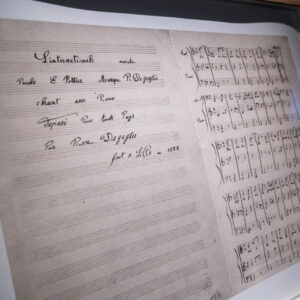 L'internationale
Parole E. Pottier Musique P. Degeyter
chant avec Piano
Déposé Pour tout Pays
Par Pierre Degeyter
fait à Lille en 1888